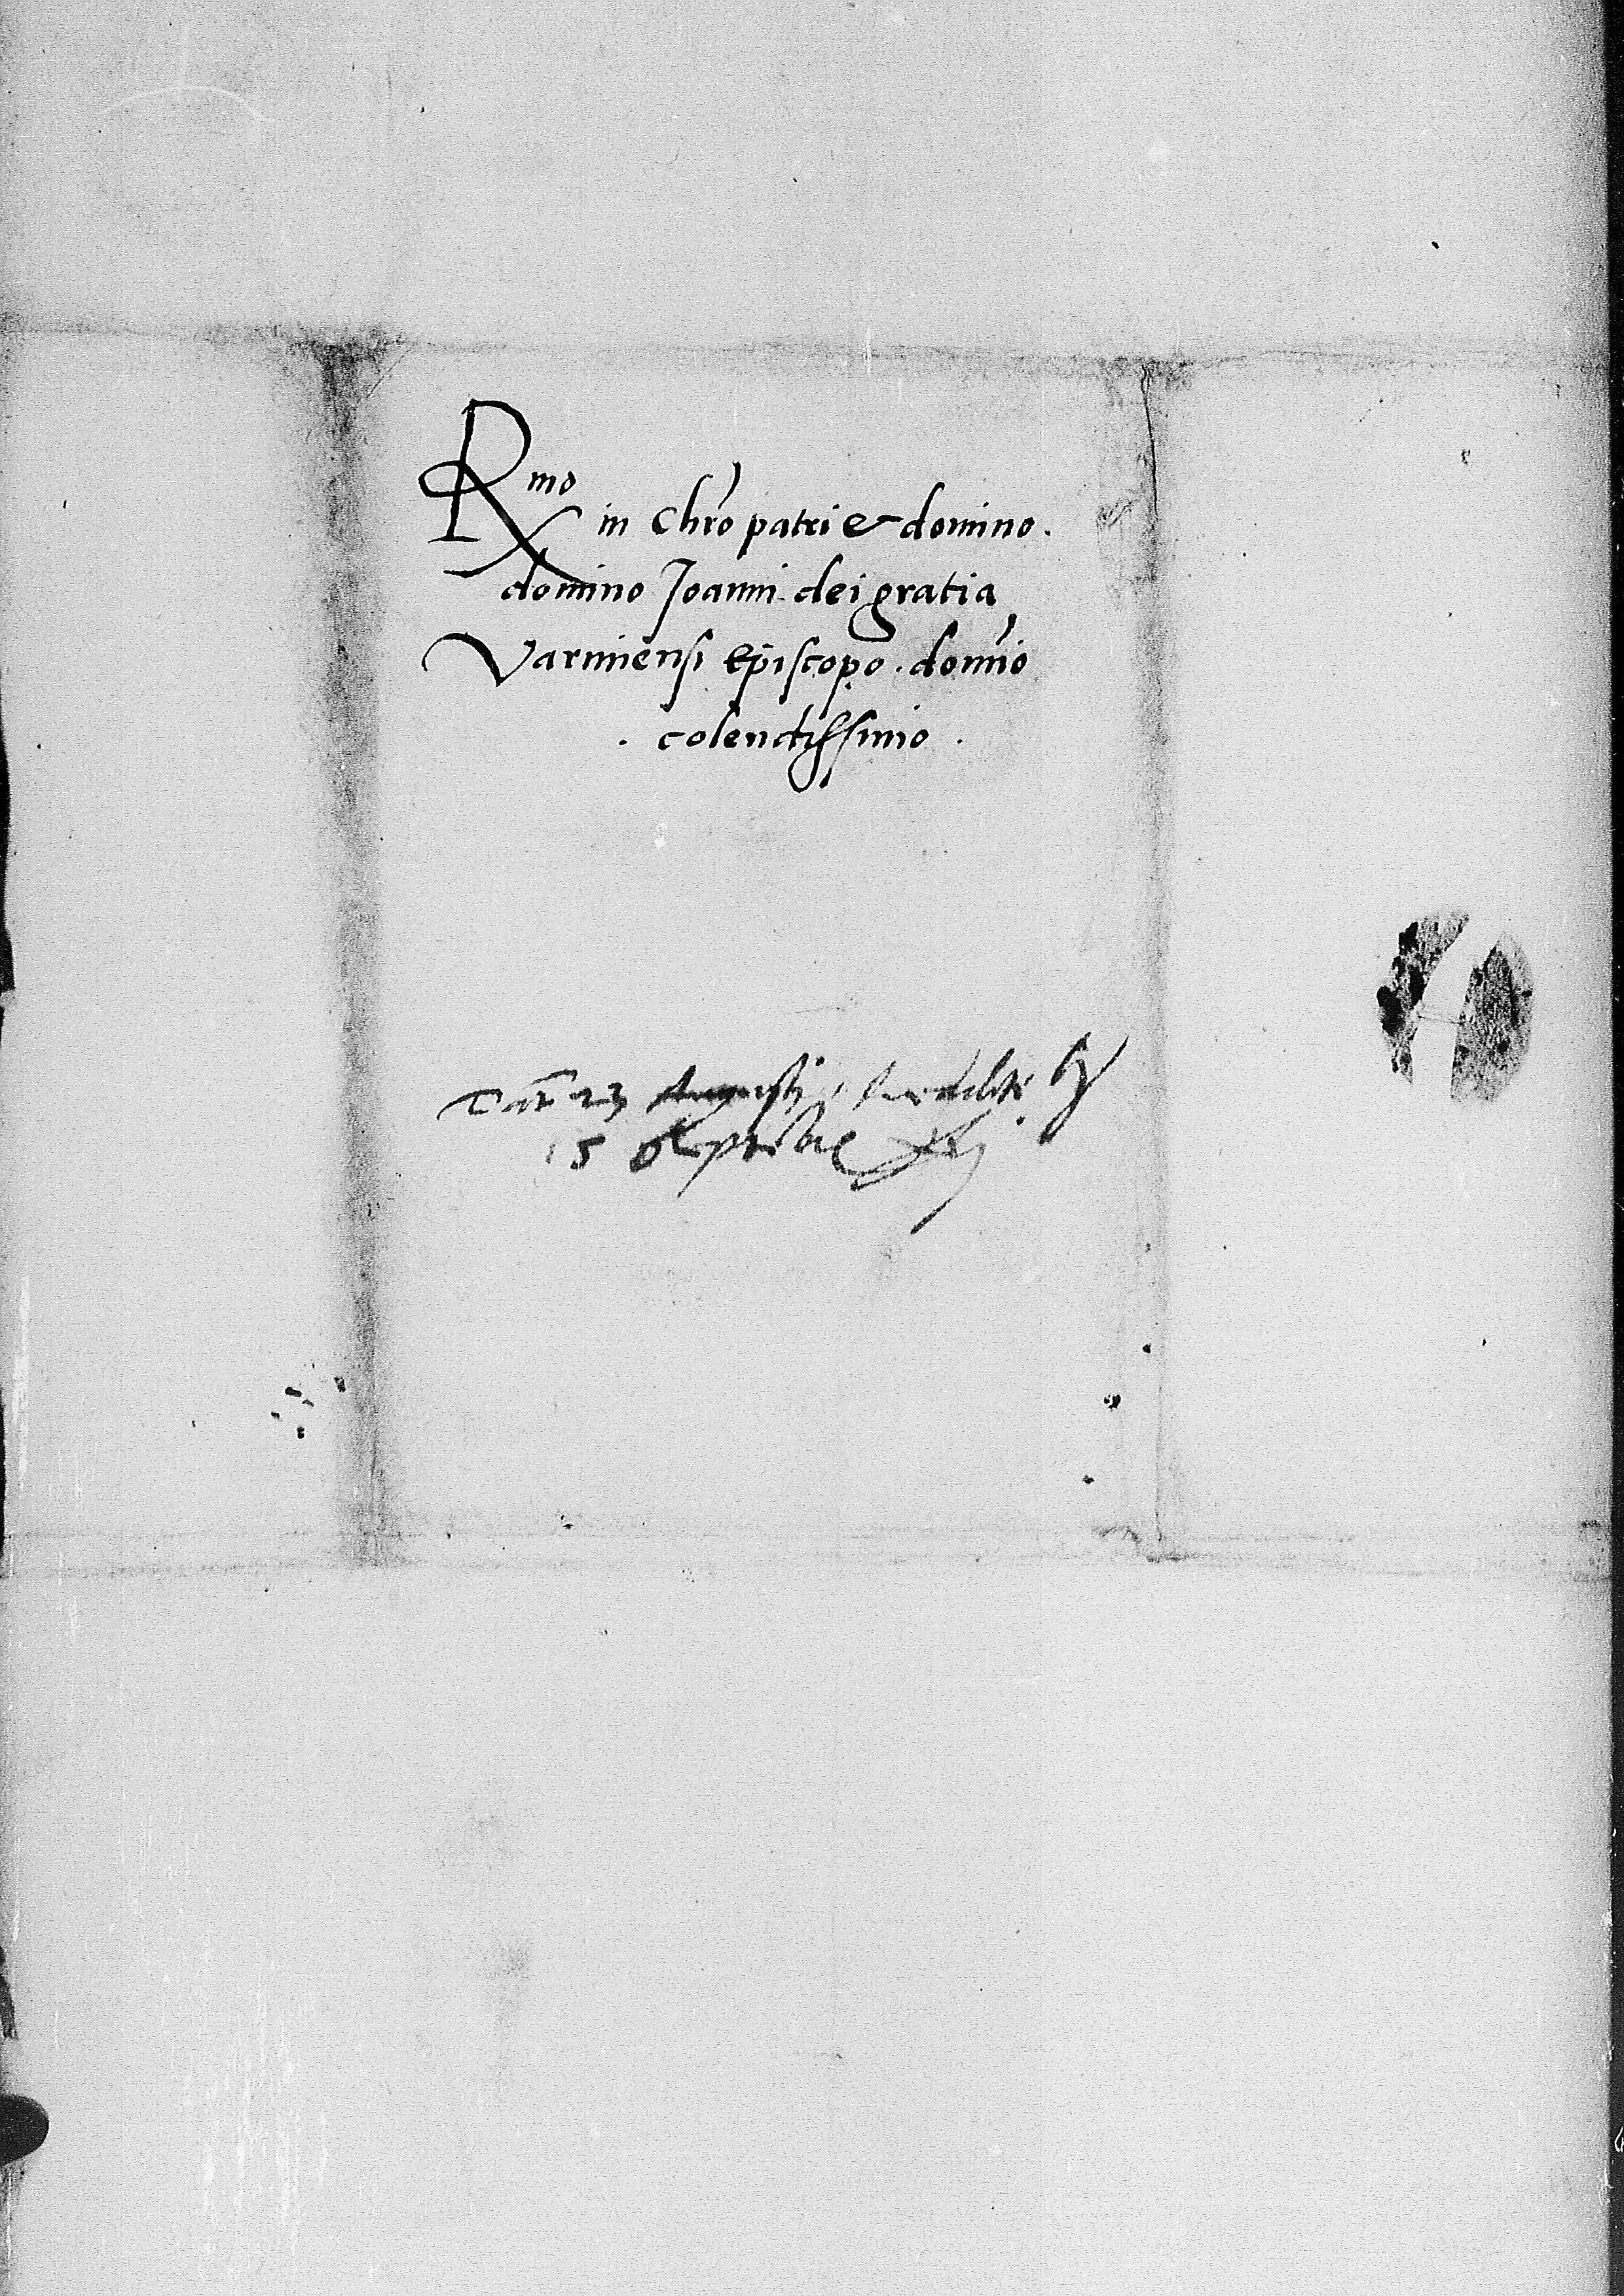 Rmo in Chro patri & domino.
domino Joanni dei gratia
Varmiensi Episcopo. domino
. colendissimo .
Dat 23 Augusti,
15 Septembris